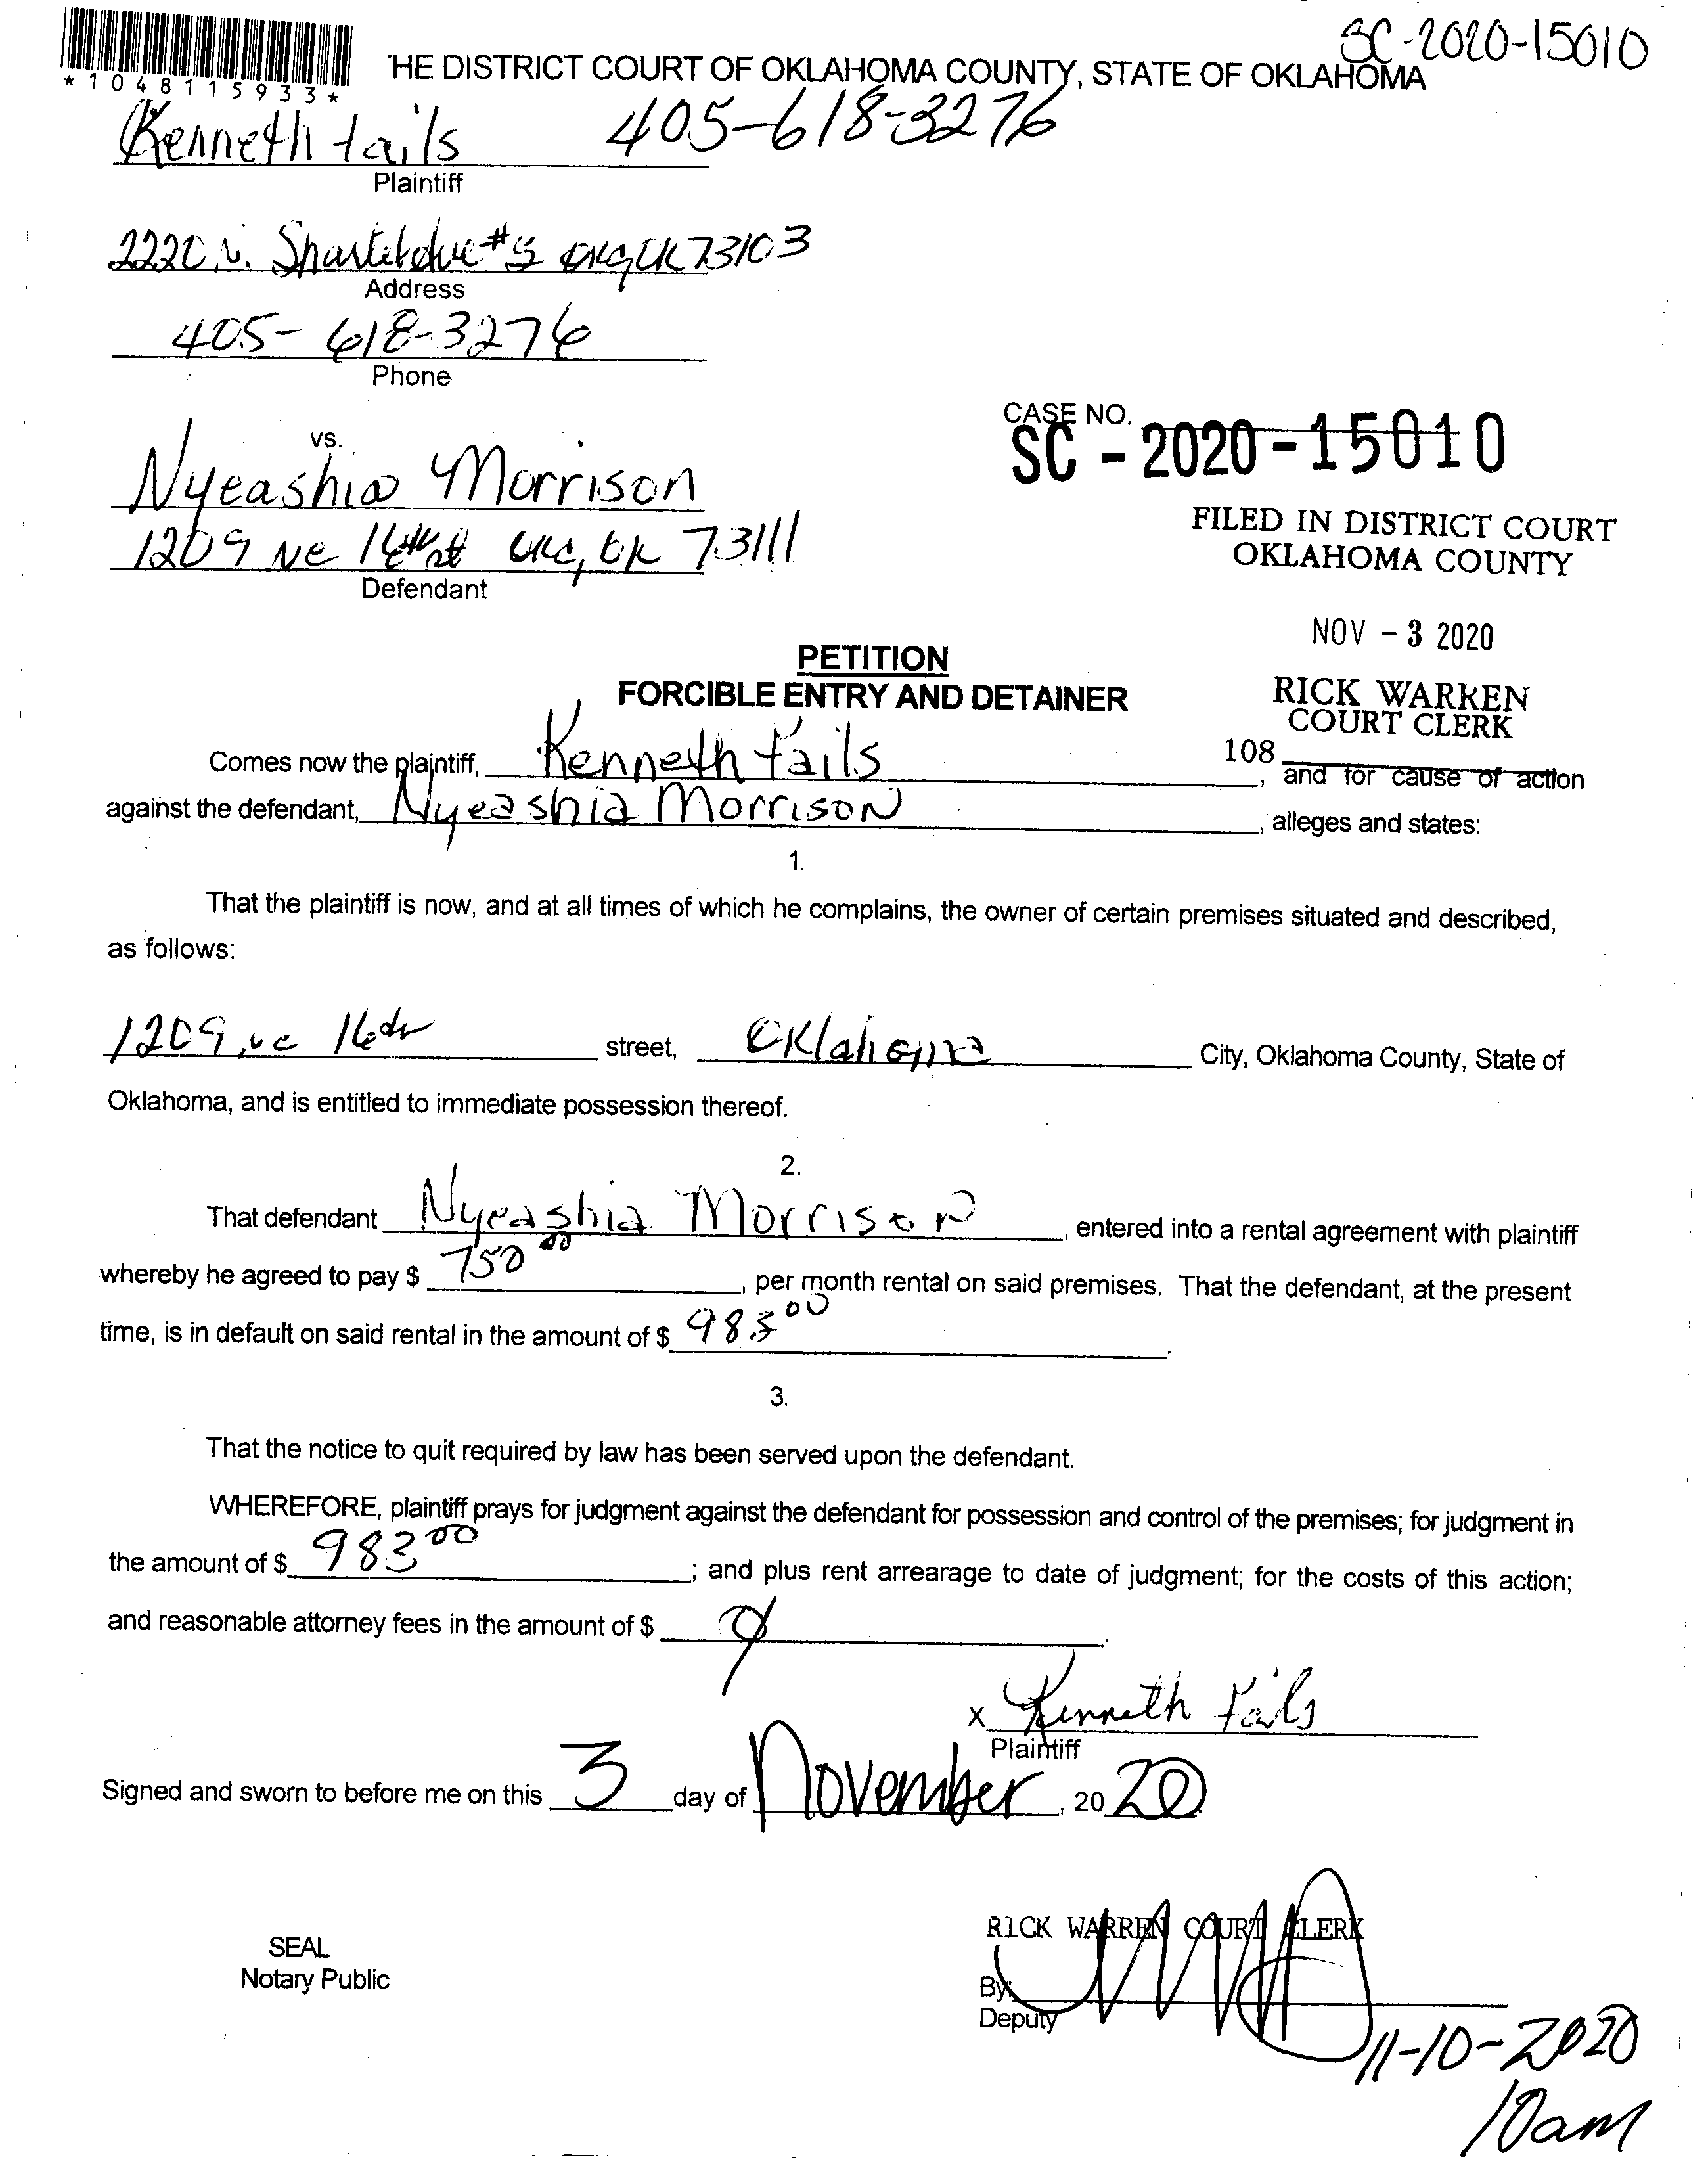 SC-2020-15010
*1048115933*
THE DISTRICT COURT OF OKLAHOMA COUNTY, STATE OF OKLAHOMA
Kenneth tails 405-618-3276
Plaintiff
2220 N. #5 OKC OK 73103
Address
405-618-3276
Phone
vs.
CASE NO.
SC-2020-15010
Nyeashia Morrison
1209 NE 16th st OKC, OK 73111
Defendant
FILED IN DISTRICT COURT
OKLAHOMA COUNTY
NOV - 3 2020
RICK WARREN
COURT CLERK
108
PETITION
FORCIBLE ENTRY AND DETAINER
Comes now the plaintiff, Kenneth tails, and for cause of action
against the defendant, Nyeashia Morrison, alleges and states:
1.
That the plaintiff is now, and at all times of which he complains, the owner of certain premises situated and described,
as follows:
1209 NE 16th street, Oklahoma City, Oklahoma County, State of
Oklahoma, and is entitled to immediate possession thereof.
2.
That defendant Nyeashia Morrison, entered into a rental agreement with plaintiff
whereby he agreed to pay $ 750 00, per month rental on said premises. That the defendant, at the present
time, is in default on said rental in the amount of $ 983 00.
3.
That the notice to quit required by law has been served upon the defendant.
WHEREFORE, plaintiff prays for judgment against the defendant for possession and control of the premises; for judgment in
the amount of $ 983 00; and plus rent arrearage to date of judgment; for the costs of this action;
and reasonable attorney fees in the amount of $
x Kenneth tails
Plaintiff
Signed and sworn to before me on this 3 day of November, 20 20
SEAL
Notary Public
RICK WARREN COURT CLERK
By:
Deputy
11-10-2020
10am